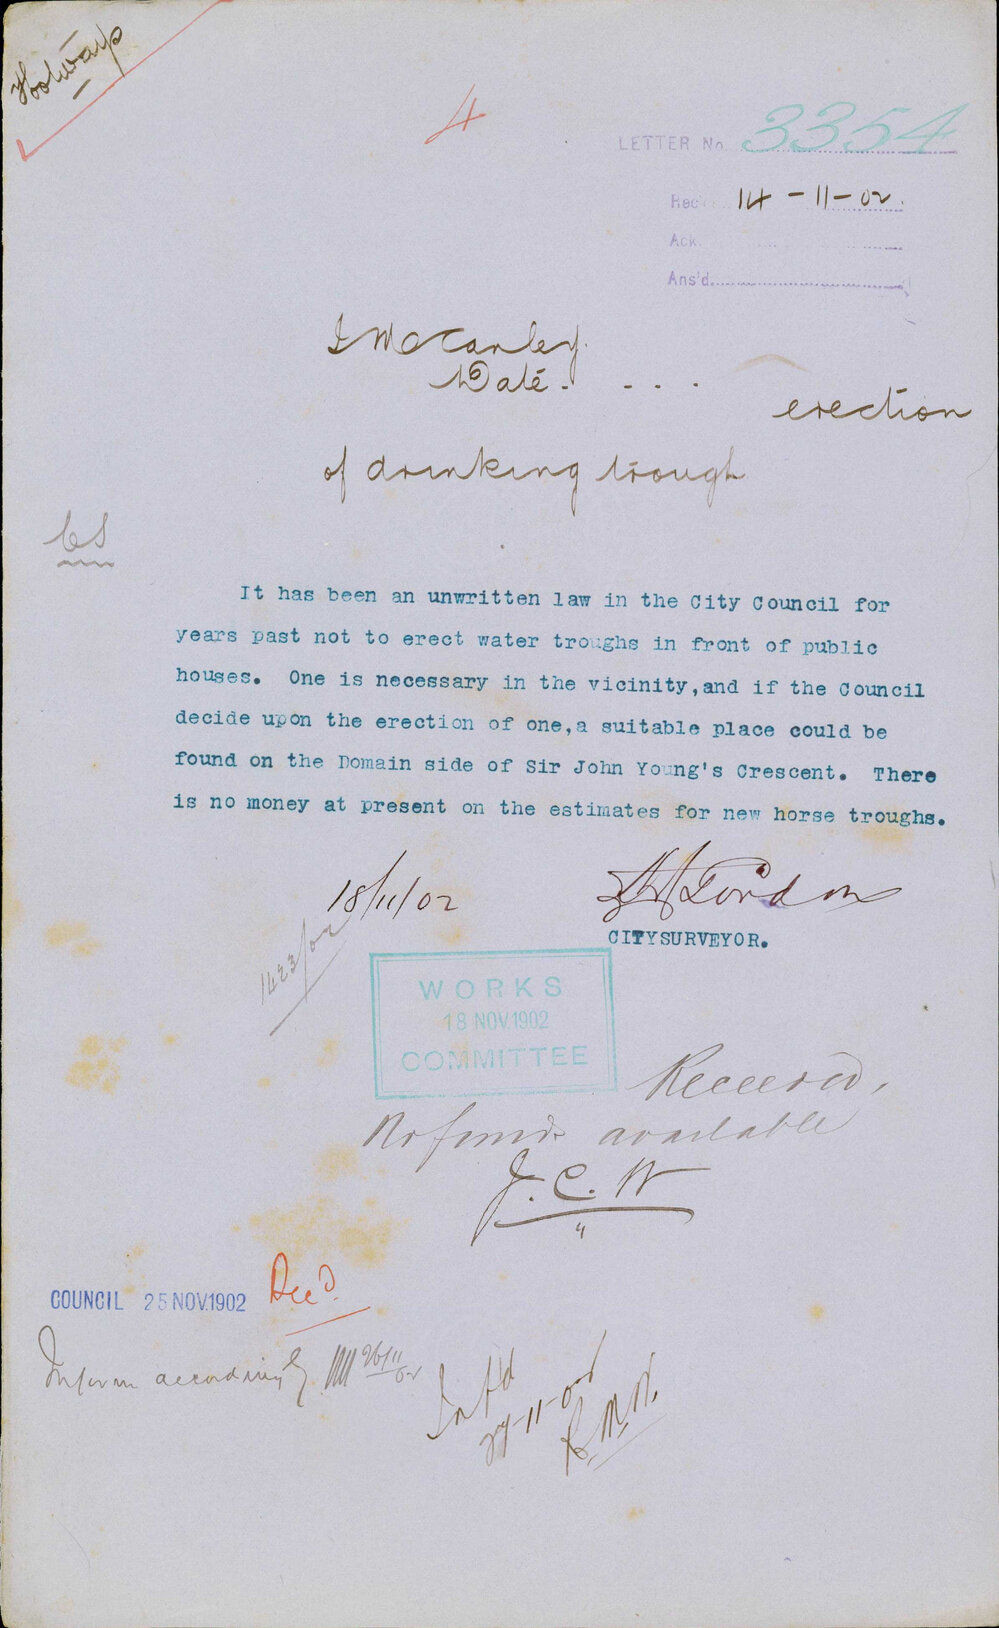 Footways
4
LETTER No. 3354
Rec'd 14-11-02.
Ack.
Ans'd
J McCauley.
Waté. . . .
erection
of drinking trough
CS
It has been an unwritten law in the City Council for
years past not to erect water troughs in front of public
houses. One is necessary in the vicinity,and if the Council
decide upon the erection of one,a suitable place could be
found on the Domain side of Sir John Young's Crescent. There
is no money at present on the estimates for new horse troughs.
18/11/02
Gordon
CITYSURVEYOR.
1423/02
WORKS
18 NOV.1902
COMMITTEE
Received,
No funds available
J. C. W
COUNCIL 25 NOV.1902 Rec'd
Inform accordingly 26/11/02
Inf'd
27-11-02